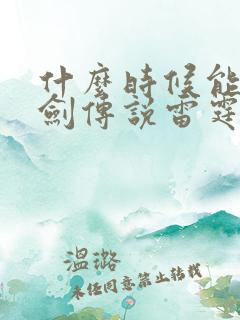 什麼時候能
劍傳說雷霆
溫璐
未經同意禁止轉載